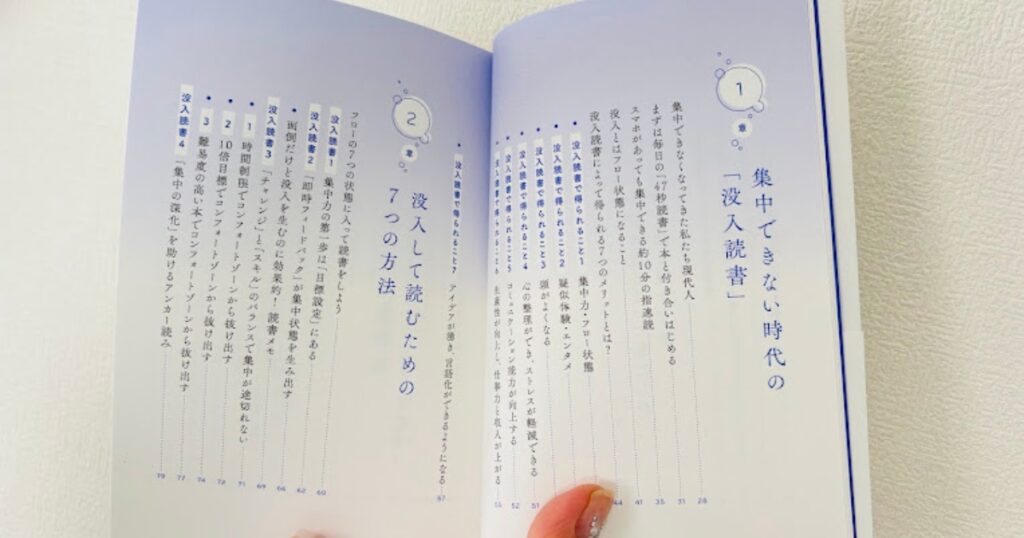 1
章
集中できない時代の
「没入読書」
集中できなくなってきた私たち現代人 28
まずは毎日の「47秒読書」で本と付き合いはじめる 31
スマホがあっても集中できる約10分の指速読 35
没入とはフロー状態になること 41
没入読書によって得られる7つのメリットとは? 44
・没入読書で得られること1 集中力・フロー状態
・没入読書で得られること2 疑似体験・エンタメ
・没入読書で得られること3 頭がよくなる
・没入読書で得られること4 心の整理ができ、ストレスが軽減できる 51
・没入読書で得られること5 コミュニケーション能力が向上する 52
・没入読書で得られること6 生産性が向上し、仕事力と収入が上がる 55
・没入読書で得られること7 アイデアが湧き、言語化ができるようになる 57
2
章
没入して読むための
7つの方法
フローの7つの状態に入って読書をしよう 60
没入読書1 集中力の第一歩は「目標設定」にある 62
没入読書2 「即時フィードバック」が集中状態を生み出す 66
・面倒だけど没入を生むのに効果的!読書メモ 69
没入読書3 「チャレンジ」と「スキル」のバランスで集中が途切れない 71
・1 時間制限でコンフォートゾーンから抜け出す 72
・2 10倍目標でコンフォートゾーンから抜け出す 74
・3 難易度の高い本でコンフォートゾーンから抜け出す 77
没入読書4 「集中の深化」を助けるアンカー読み 79